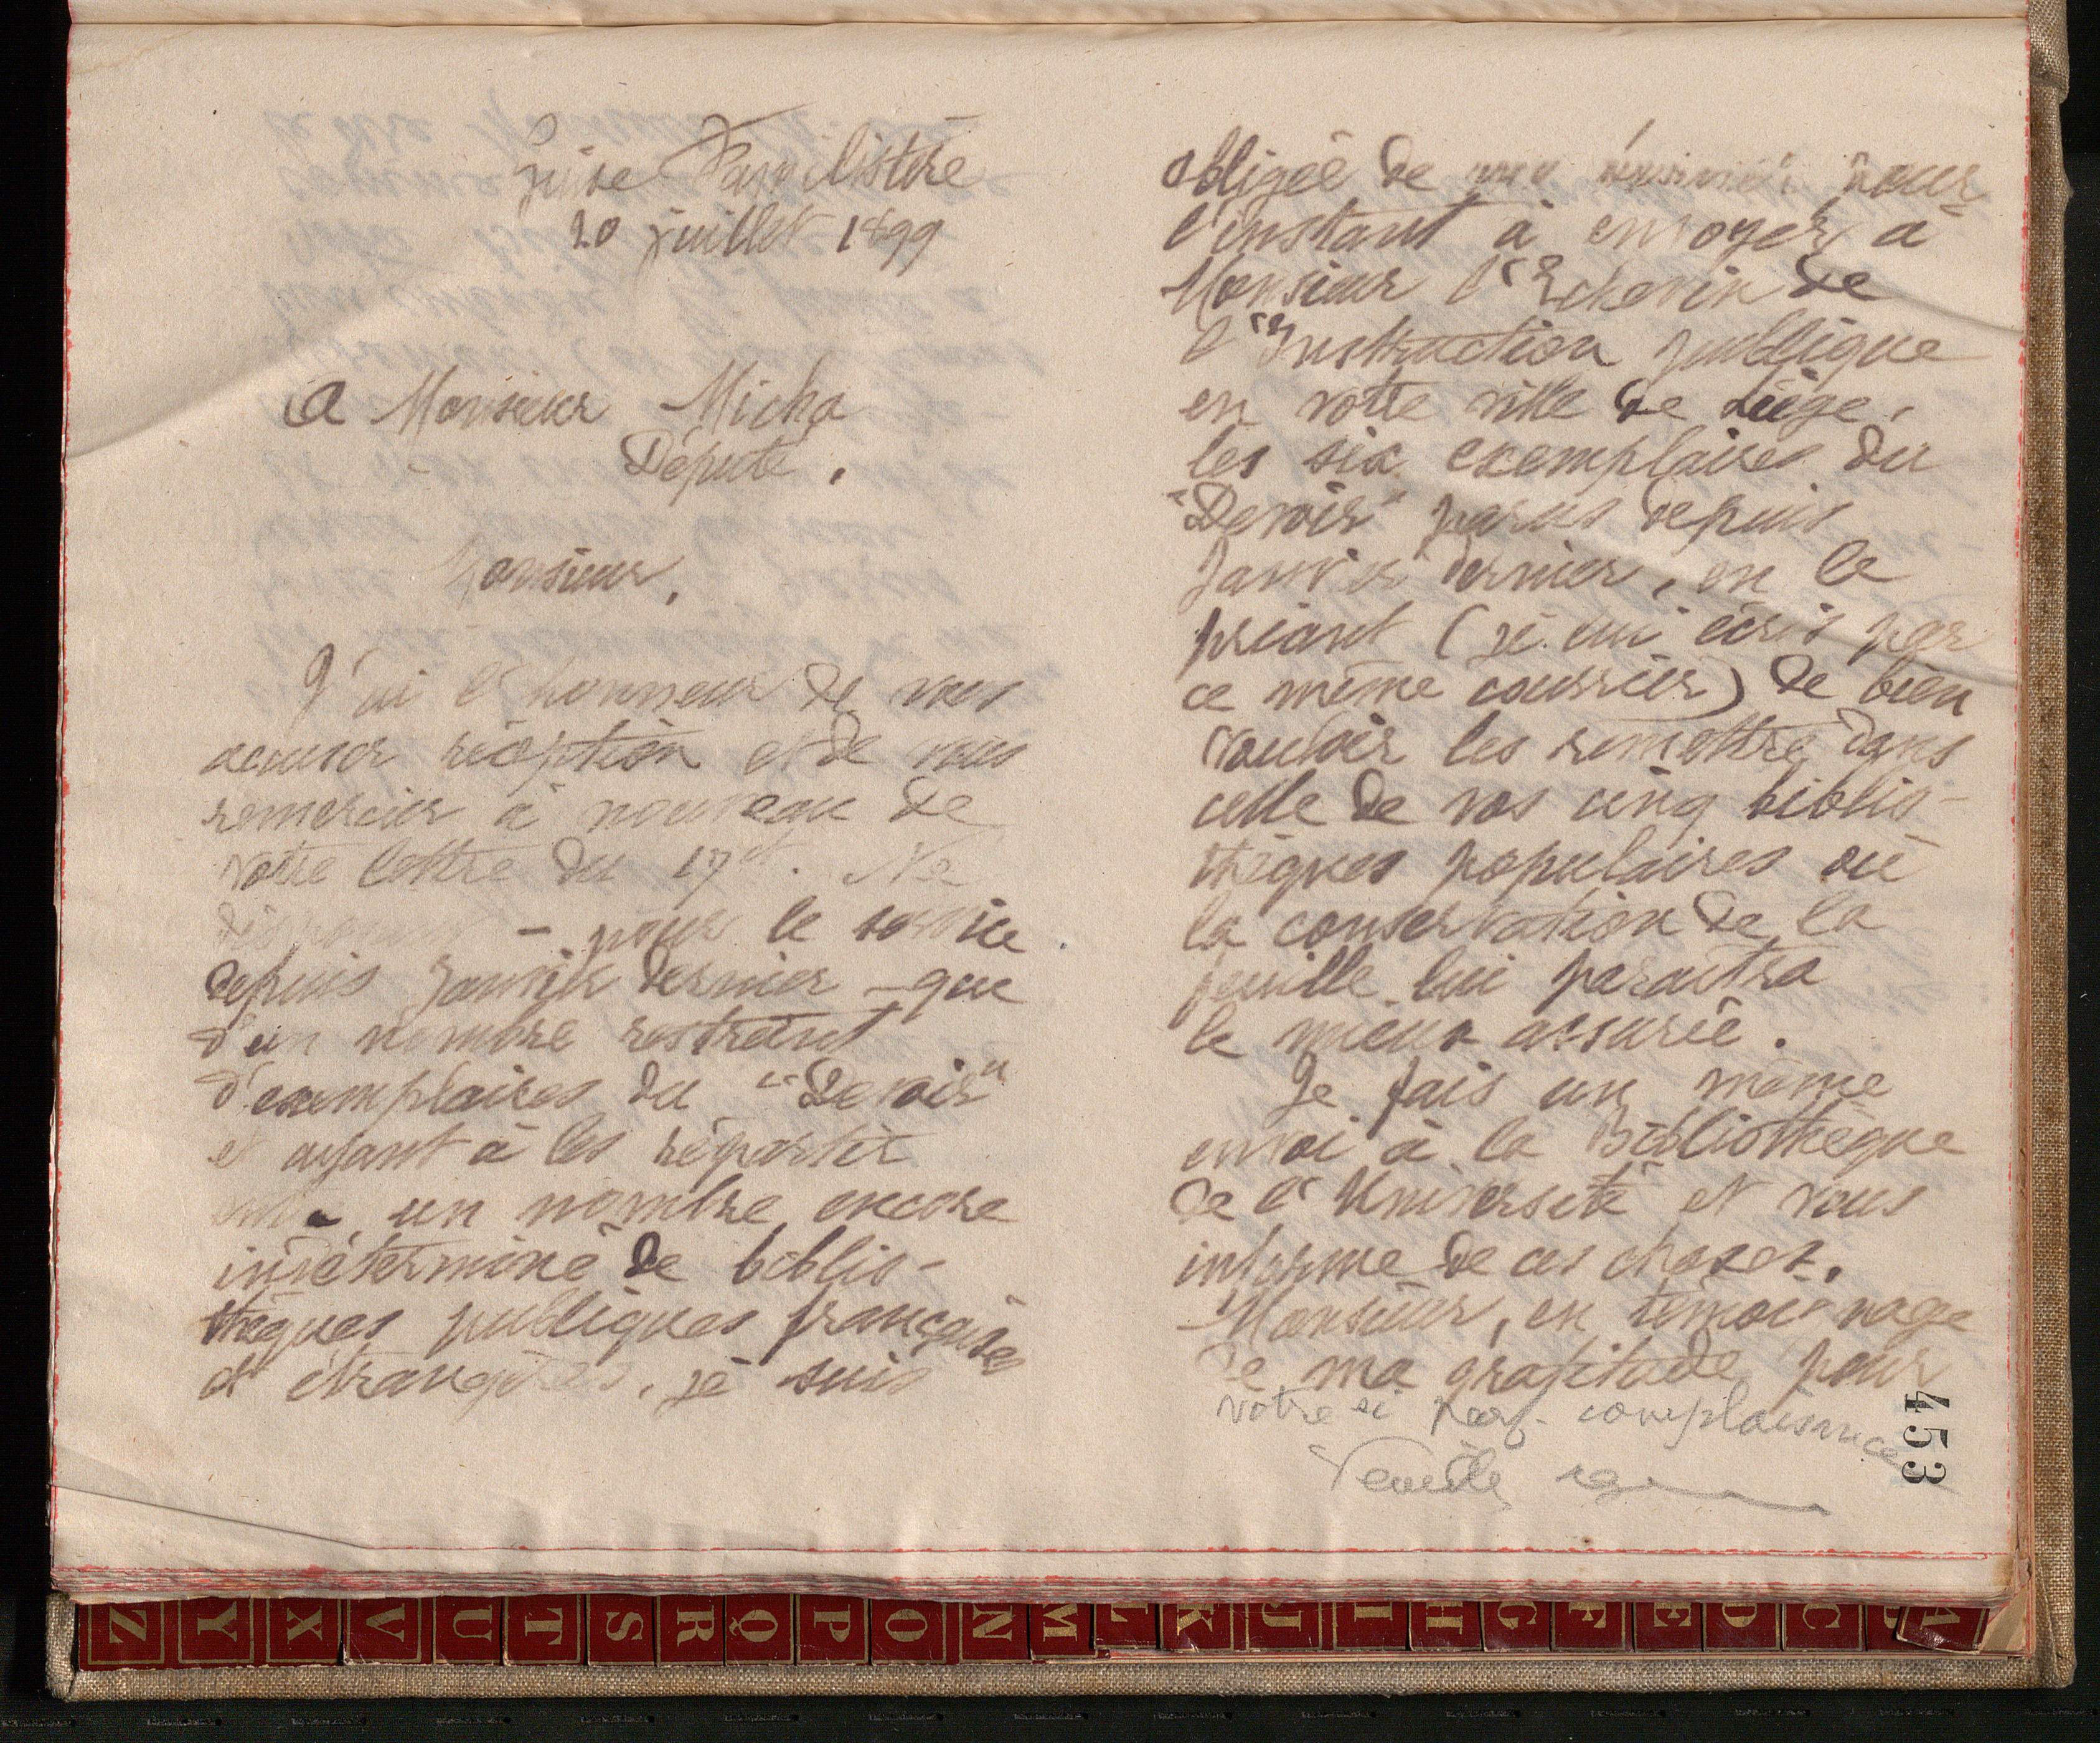 Guise Familistère
20 juillet 1899
A Monsieur Micha
Député.
Monsieur,
J'ai l'honneur de vous
accuser réception et de vous
remercier à nouveau de
votre lettre du 17 ct. Ne
disposant – pour le service
depuis Janvier dernier – que
d'un nombre restreint
d'exemplaires du "Devoir"
et ayant à les répartir
entre un nombre encore
indéterminé de biblio-
thèques publiques françaises
et étrangères, je suis
obligée de me borner pour
l'instant à envoyer à
Monsieur l'Echevin de
l'Instruction publique
en votre ville de Liège,
les six exemplaires du
"Devoir" parus depuis
Janvier dernier, en le
priant (je lui écris par
ce même courrier) de bien
vouloir les remettre dans
celle de vos cinq biblio-
thèques populaires où
la conservation de la
feuille lui paraîtra
le mieux assurée.
Je fais un même
envoi à la Bibliothèque
de l'Université et vous
informe de ces choses,
Monsieur, en témoignage
de ma gratitude pour
votre si parf. complaisance
Veuillez
453
Z Y X V U T S R Q P O N M L K J I H G F E D C B A